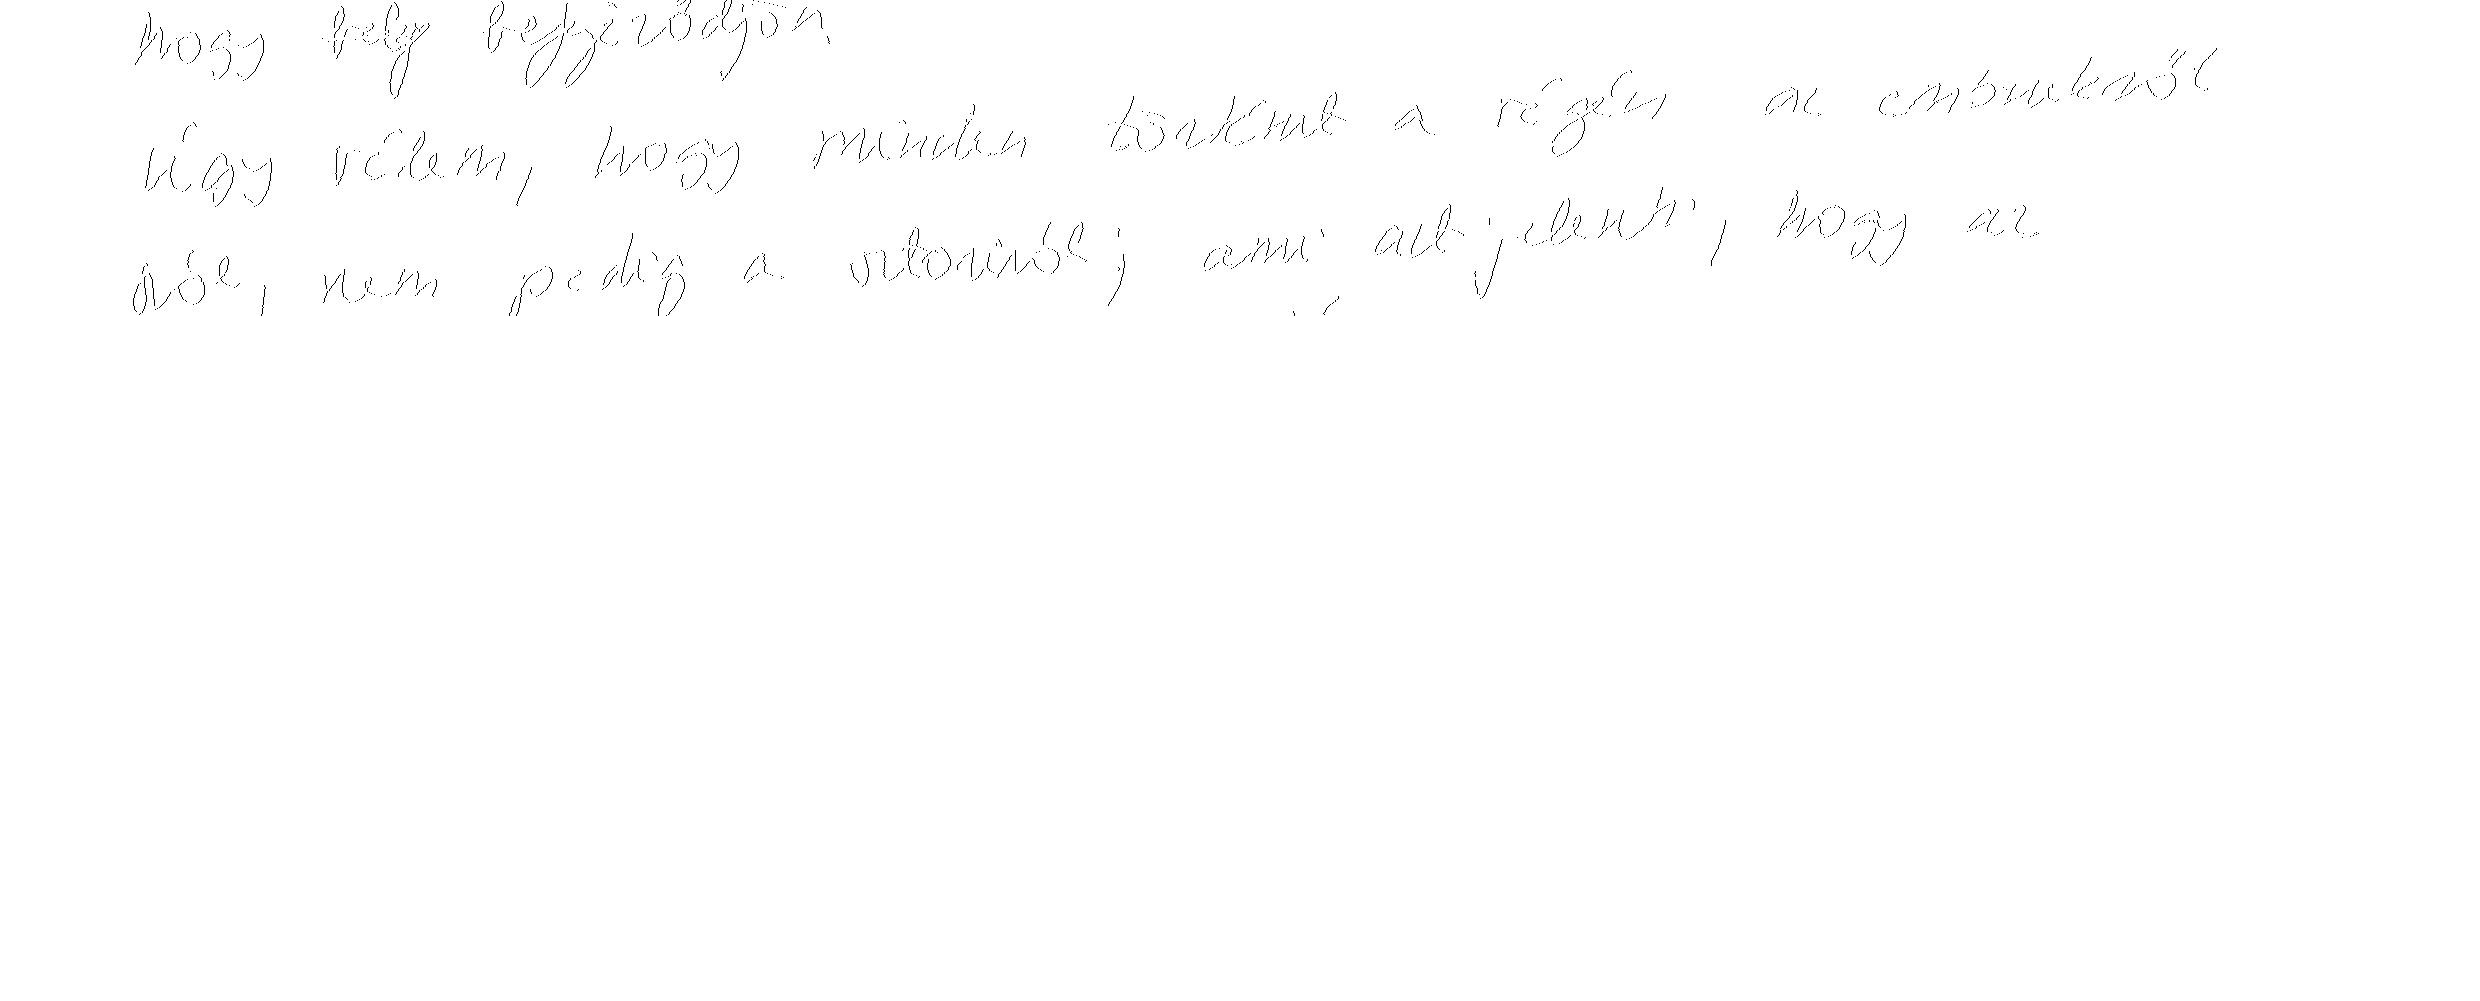 hogy hely befejeződjön
Úgy vélem, hogy minden történet a végén az emberekről
szól, nem pedig a sztoriról; ami azt jelenti, hogy az